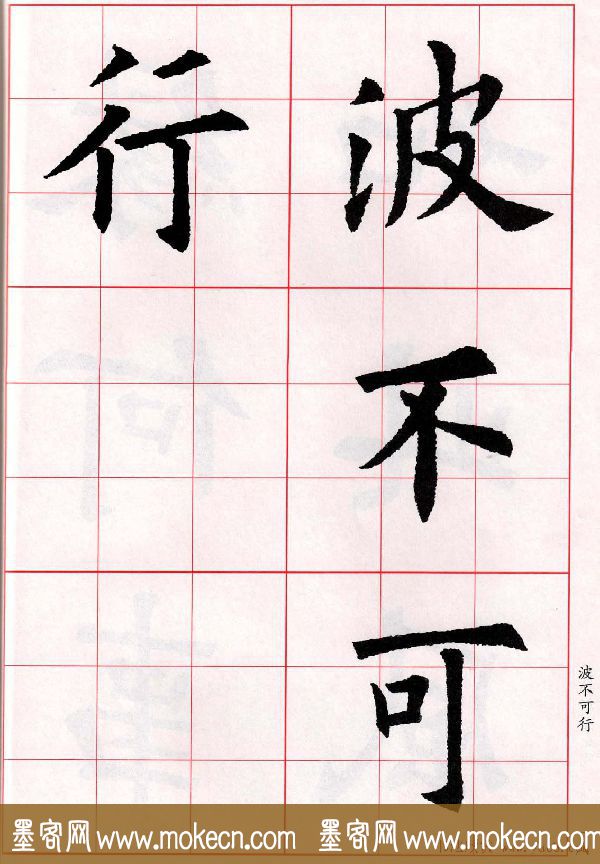 波不可
行
波不可行
墨客网www.mokecn.com 墨客网www.mokecn.com